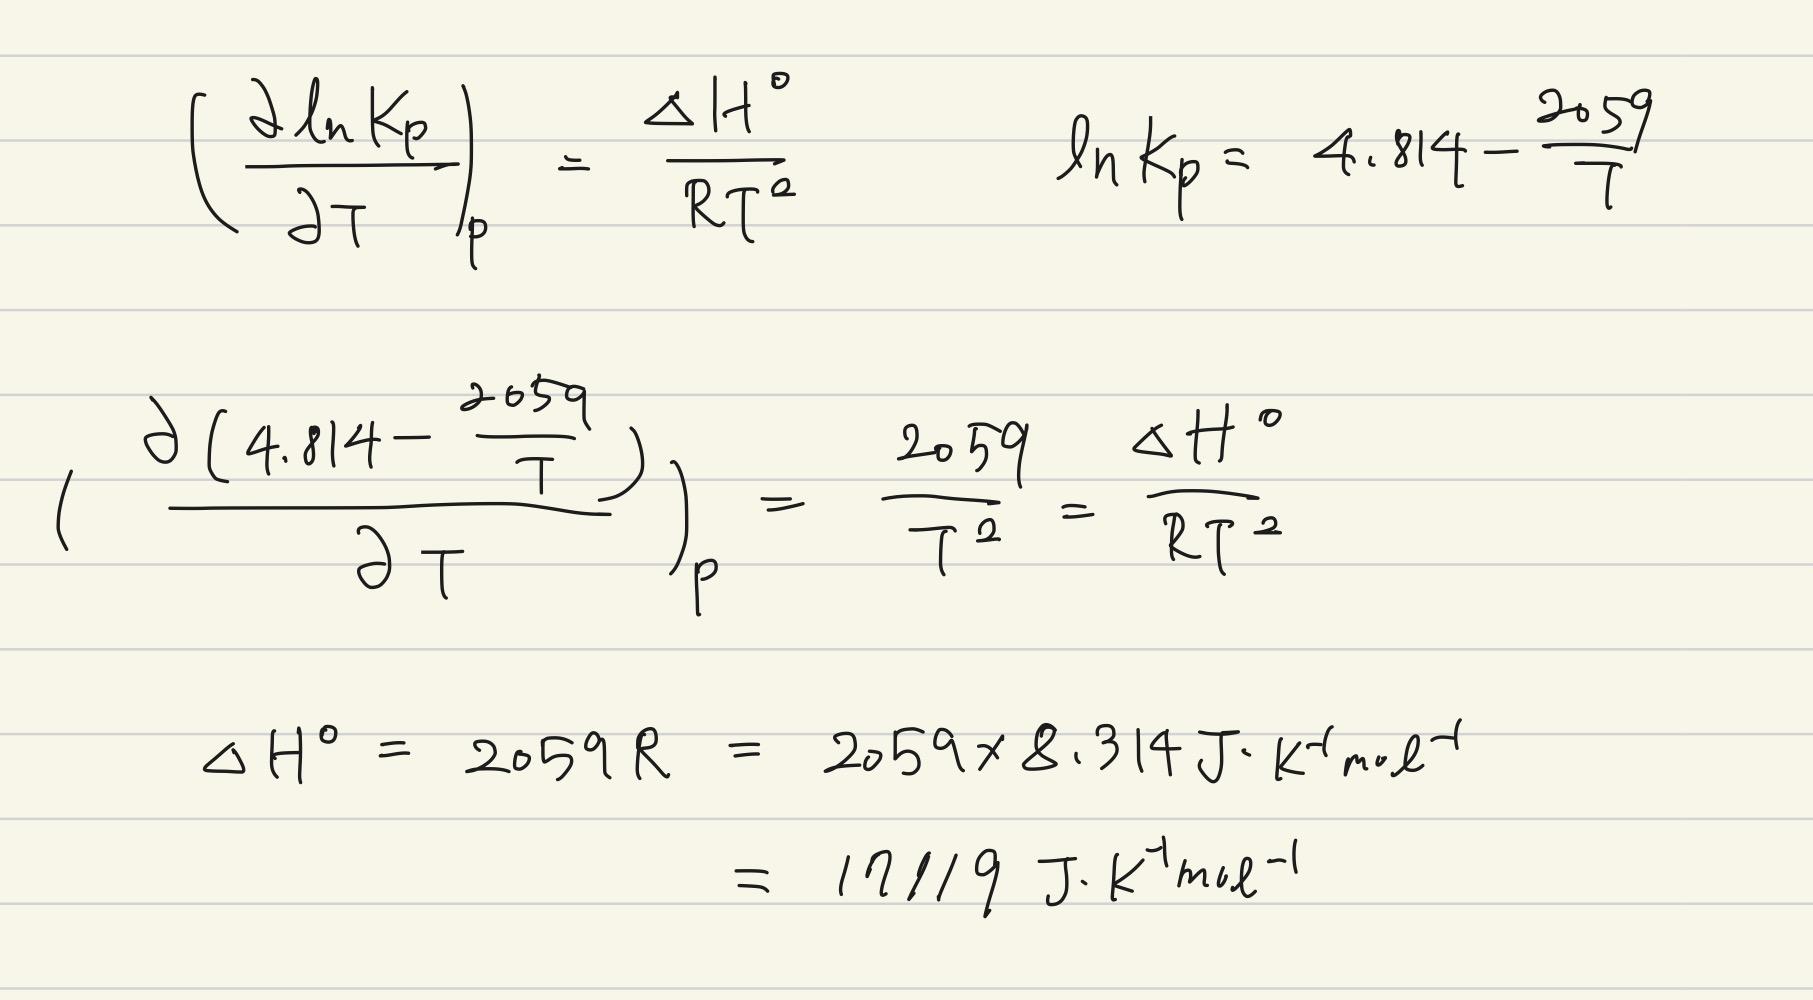 (∂ln Kp / ∂T)p = ΔH° / RT²    ln Kp = 4.814 − 2059/T
(∂(4.814 − 2059/T) / ∂T)p = 2059/T² = ΔH° / RT²
ΔH° = 2059R = 2059 × 8.314 J·K⁻¹mol⁻¹
= 17119 J·K⁻¹mol⁻¹